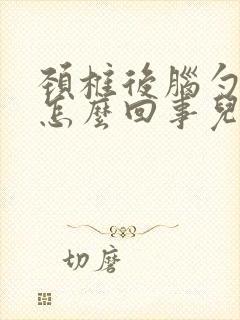 頸椎後腦勺
怎麼回事兒
切磨